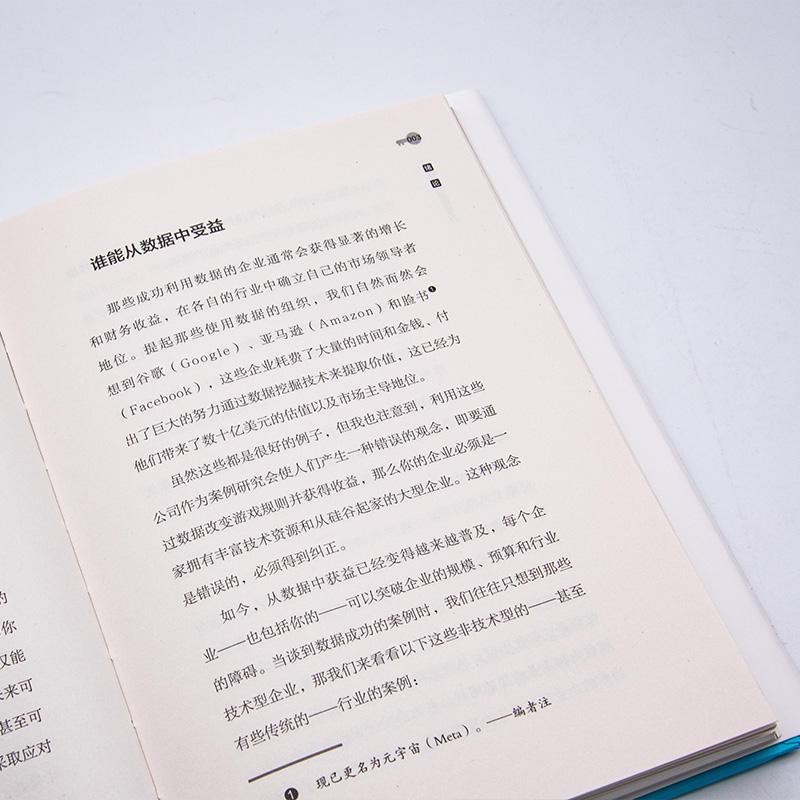 的
你
又能
未来可
甚至可
采取应对
003
绪
论
谁能从数据中受益
那些成功利用数据的企业通常会获得显著的增长
和财务收益，在各自的行业中确立自己的市场领导者
地位。提起那些使用数据的组织，我们自然而然会
想到谷歌（Google）、亚马逊（Amazon）和脸书❶
（Facebook），这些企业耗费了大量的时间和金钱、付
出了巨大的努力通过数据挖掘技术来提取价值，这已经为
他们带来了数十亿美元的估值以及市场主导地位。
虽然这些都是很好的例子，但我也注意到，利用这些
公司作为案例研究会使人们产生一种错误的观念，即要通
过数据改变游戏规则并获得收益，那么你的企业必须是一
家拥有丰富技术资源和从硅谷起家的大型企业。这种观念
是错误的，必须得到纠正。
如今，从数据中获益已经变得越来越普及，每个企
业——也包括你的——可以突破企业的规模、预算和行业
的障碍。当谈到数据成功的案例时，我们往往只想到那些
技术型企业，那我们来看看以下这些非技术型的——甚至
有些传统的——行业的案例：
❶ 现已更名为元宇宙（Meta）。——编者注